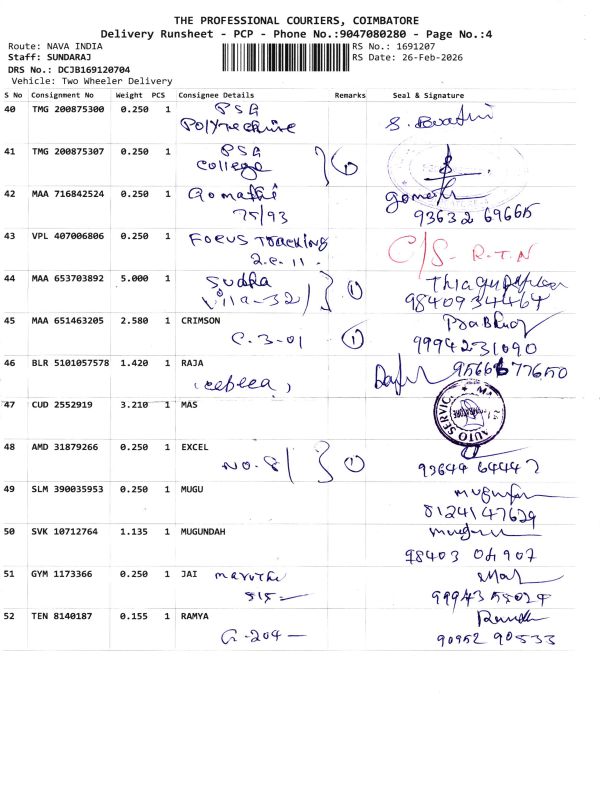 THE PROFESSIONAL COURIERS, COIMBATORE
Delivery Runsheet - PCP - Phone No.:9047080280 - Page No.:4
Route: NAVA INDIA RS No.: 1691207
Staff: SUNDARAJ RS Date: 26-Feb-2026
DRS No.: DCJB169120704
Vehicle: Two Wheeler Delivery
S No Consignment No Weight PCS Consignee Details Remarks Seal & Signature
40 TMG 200875300 0.250 1 PSG
Polytechnic
41 TMG 200875307 0.250 1 PSG
College 1
42 MAA 716842524 0.250 1 Gomathi
75/93 93632 69665
43 VPL 407006806 0.250 1 Focus Tracking C/S- R.T.N
2.e.11
44 MAA 653703892 5.000 1 Sudha
Villa-32 1 9840934464
45 MAA 651463205 2.580 1 CRIMSON Prabhu
C.3-01 1 9994231090
46 BLR 5101057578 1.420 1 RAJA
47 CUD 2552919 3.210 1 MAS
AUTO SERVIC
48 AMD 31879266 0.250 1 EXCEL
NO.8 1 93644 64447
49 SLM 390035953 0.250 1 MUGU
8124147629
50 SVK 10712764 1.135 1 MUGUNDAH
98403 04907
51 GYM 1173366 0.250 1 JAI Maruthi
515
52 TEN 8140187 0.155 1 RAMYA
G-204 90952 90533